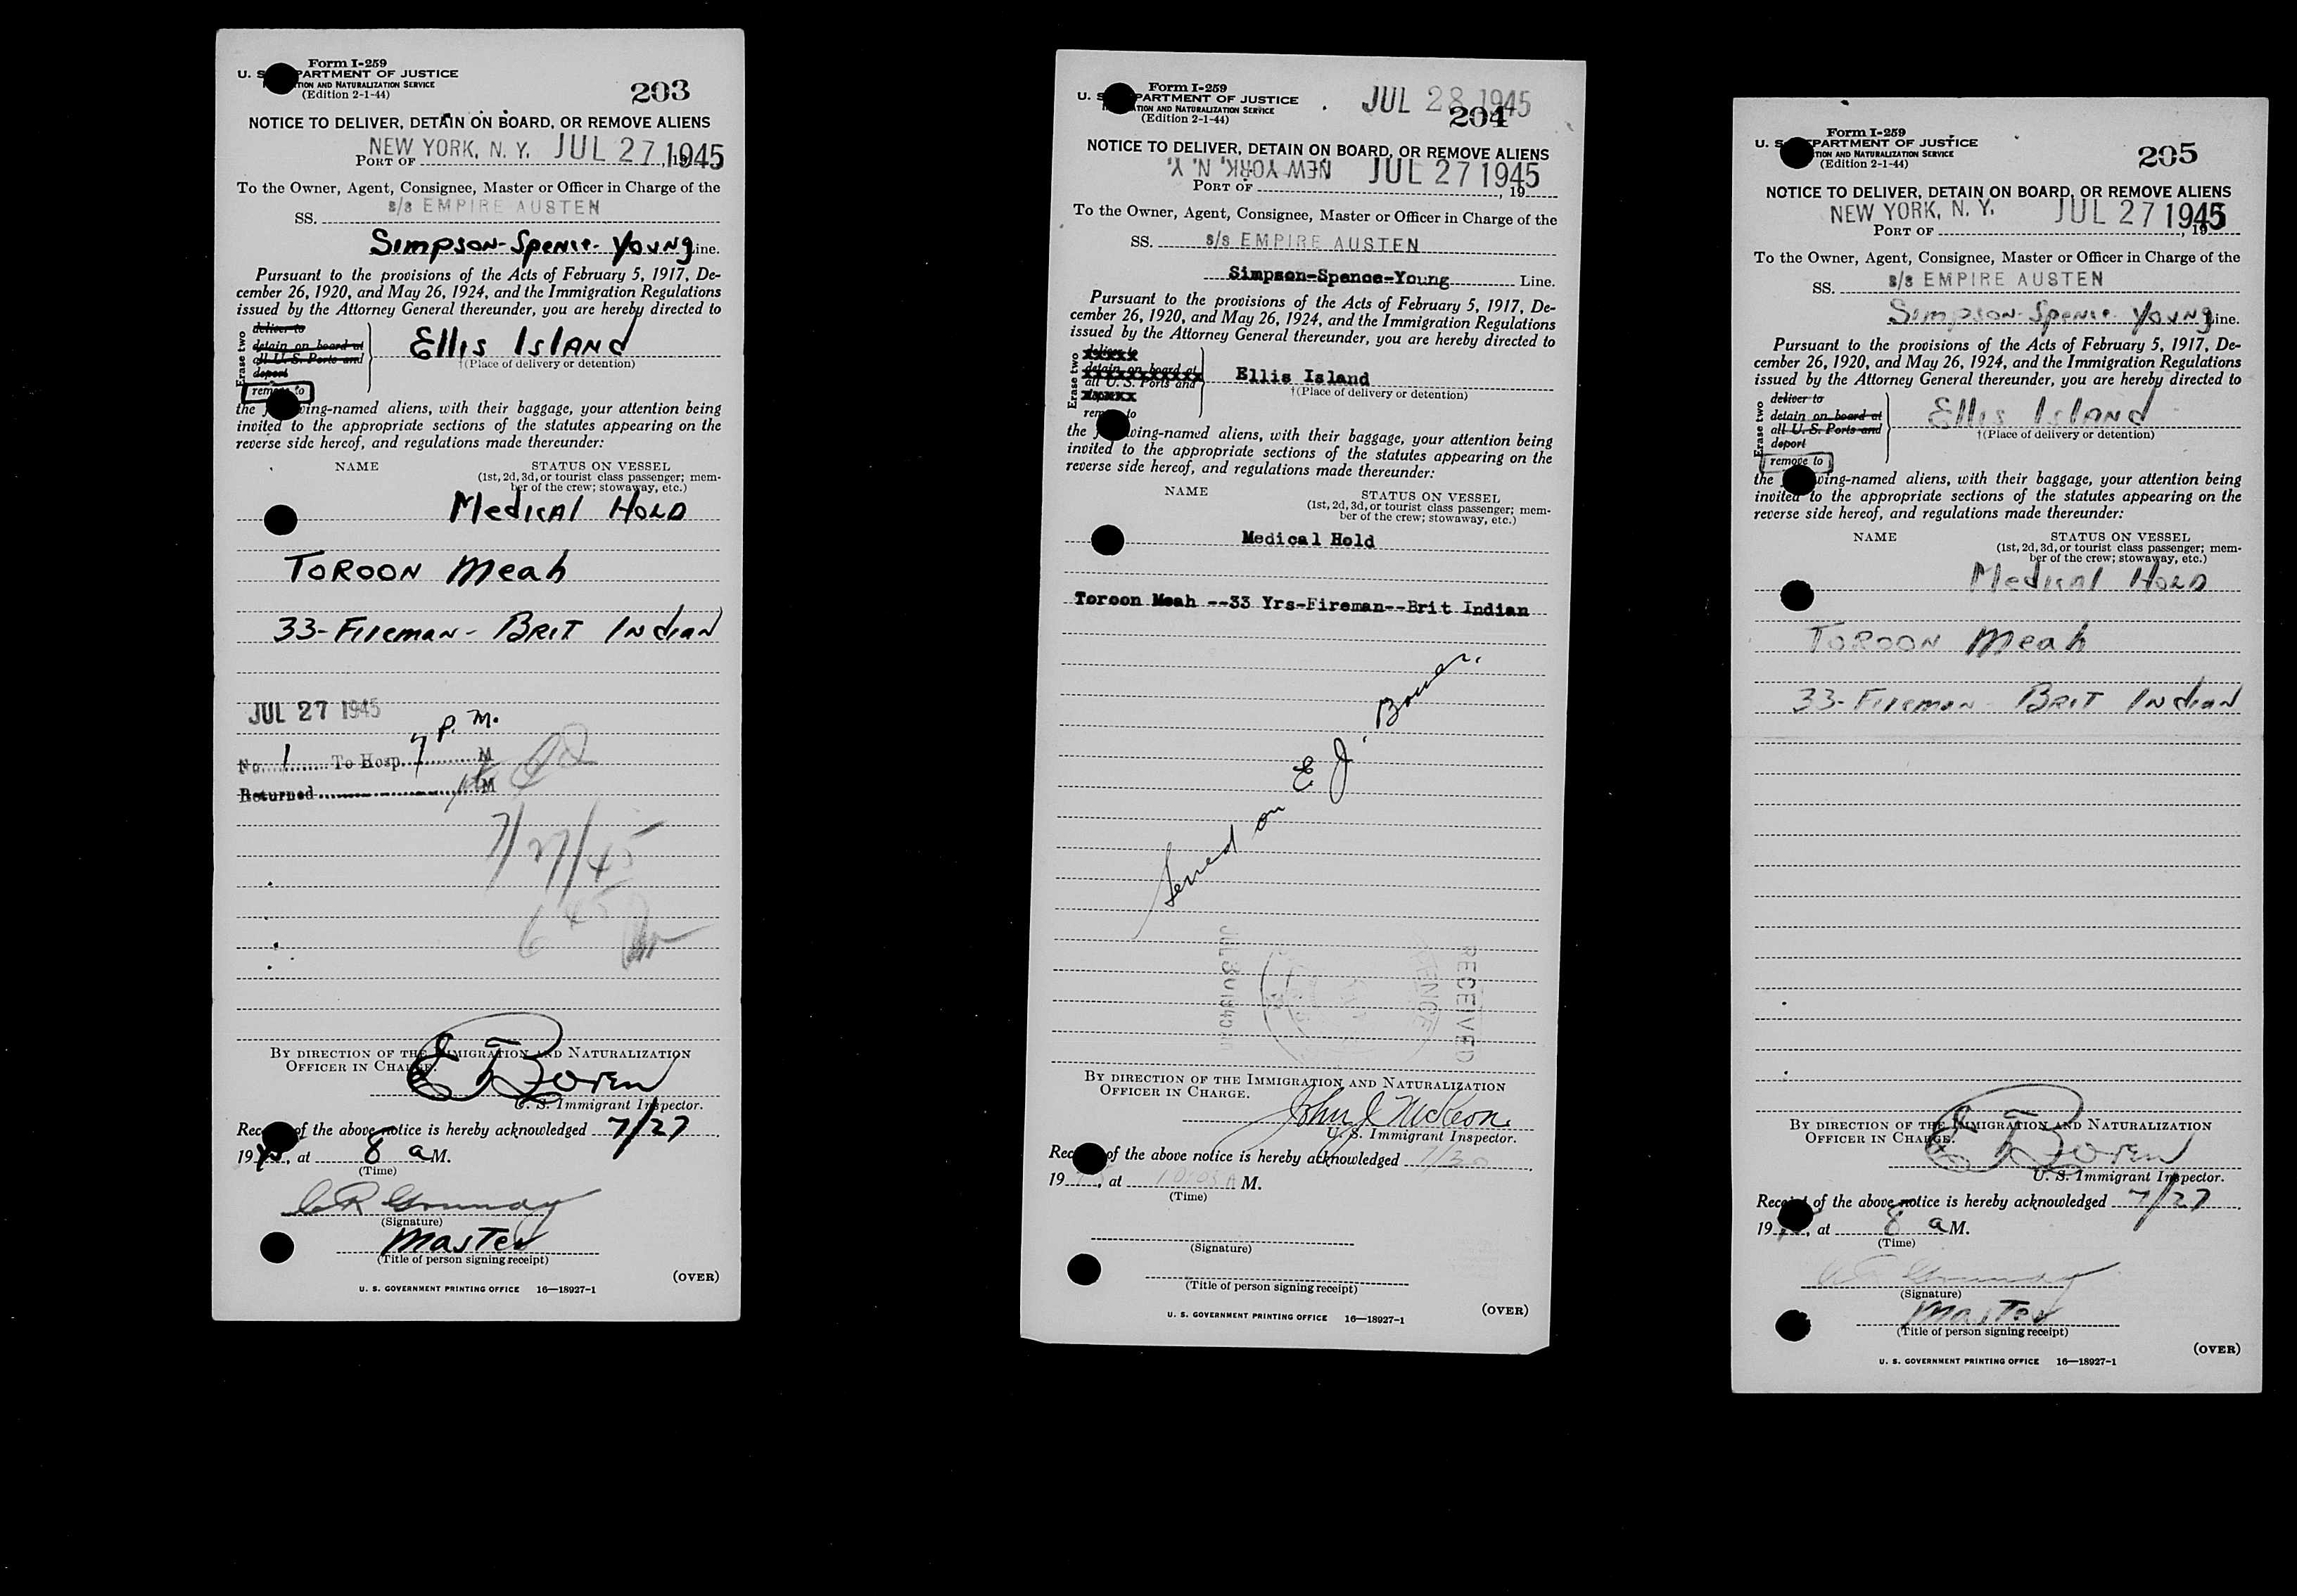 Form I-259
U. S. DEPARTMENT OF JUSTICE
TION AND NATURALIZATION SERVICE
(Edition 2-1-44)
203
NOTICE TO DELIVER, DETAIN ON BOARD, OR REMOVE ALIENS
NEW YORK, N. Y. JUL 27 1945
PORT OF
To the Owner, Agent, Consignee, Master or Officer in Charge of the
SS. s/s EMPIRE AUSTEN
Simpson-Spence-Young Line.
Pursuant to the provisions of the Acts of February 5, 1917, De-
cember 26, 1920, and May 26, 1924, and the Immigration Regulations
issued by the Attorney General thereunder, you are hereby directed to
Erase two
deliver to
detain on board at
all U. S. Ports and
deport
remove to
Ellis Island
†(Place of delivery or detention)
the following-named aliens, with their baggage, your attention being
invited to the appropriate sections of the statutes appearing on the
reverse side hereof, and regulations made thereunder:
NAME STATUS ON VESSEL
(1st, 2d, 3d, or tourist class passenger; mem-
ber of the crew; stowaway, etc.)
Medical Hold
Toroon Meah
33-Fireman-Brit Indian
JUL 27 1945
7 P. M.
No. 1 To Hosp. M
Returned M
7/27/45
6 45
BY DIRECTION OF THE IMMIGRATION AND NATURALIZATION
OFFICER IN CHARGE.
E Boren
U. S. Immigrant Inspector.
Receipt of the above notice is hereby acknowledged 7/27
1945, at 8 a M.
(Time)
C R Grundy
(Signature)
Master
(Title of person signing receipt)
(OVER)
U. S. GOVERNMENT PRINTING OFFICE 16—18927-1
Form I-259
U. S. DEPARTMENT OF JUSTICE
TION AND NATURALIZATION SERVICE
(Edition 2-1-44)
JUL 28 1945
204
NOTICE TO DELIVER, DETAIN ON BOARD, OR REMOVE ALIENS
NEW YORK, N. Y. JUL 27 1945
PORT OF , 19
To the Owner, Agent, Consignee, Master or Officer in Charge of the
SS. s/s EMPIRE AUSTEN
Simpson-Spence-Young Line.
Pursuant to the provisions of the Acts of February 5, 1917, De-
cember 26, 1920, and May 26, 1924, and the Immigration Regulations
issued by the Attorney General thereunder, you are hereby directed to
Erase two
deliver to
detain on board at
all U. S. Ports and
deport
remove to
Ellis Island
†(Place of delivery or detention)
the following-named aliens, with their baggage, your attention being
invited to the appropriate sections of the statutes appearing on the
reverse side hereof, and regulations made thereunder:
NAME STATUS ON VESSEL
(1st, 2d, 3d, or tourist class passenger; mem-
ber of the crew; stowaway, etc.)
Medical Hold
Toroon Meah --33 Yrs-Fireman--Brit Indian
Served on E J. Bower
RECEIVED
JUL 30 1945
BY DIRECTION OF THE IMMIGRATION AND NATURALIZATION
OFFICER IN CHARGE.
John J McKeon
U. S. Immigrant Inspector.
Receipt of the above notice is hereby acknowledged 7/30
19 , at 10:03 A M.
(Time)
(Signature)
(Title of person signing receipt)
(OVER)
U. S. GOVERNMENT PRINTING OFFICE 16—18927-1
Form I-259
U. S. DEPARTMENT OF JUSTICE
TION AND NATURALIZATION SERVICE
(Edition 2-1-44)
205
NOTICE TO DELIVER, DETAIN ON BOARD, OR REMOVE ALIENS
NEW YORK, N. Y. JUL 27 1945
PORT OF , 19
To the Owner, Agent, Consignee, Master or Officer in Charge of the
SS. s/s EMPIRE AUSTEN
Simpson-Spence-Young Line.
Pursuant to the provisions of the Acts of February 5, 1917, De-
cember 26, 1920, and May 26, 1924, and the Immigration Regulations
issued by the Attorney General thereunder, you are hereby directed to
Erase two
deliver to
detain on board at
all U. S. Ports and
deport
remove to
Ellis Island
†(Place of delivery or detention)
the following-named aliens, with their baggage, your attention being
invited to the appropriate sections of the statutes appearing on the
reverse side hereof, and regulations made thereunder:
NAME STATUS ON VESSEL
(1st, 2d, 3d, or tourist class passenger; mem-
ber of the crew; stowaway, etc.)
Medical Hold
Toroon Meah
33-Fireman-Brit Indian
BY DIRECTION OF THE IMMIGRATION AND NATURALIZATION
OFFICER IN CHARGE.
E Boren
U. S. Immigrant Inspector.
Receipt of the above notice is hereby acknowledged 7/27
1945, at 8 a M.
(Time)
C R Grundy
(Signature)
Master
(Title of person signing receipt)
(OVER)
U. S. GOVERNMENT PRINTING OFFICE 16—18927-1